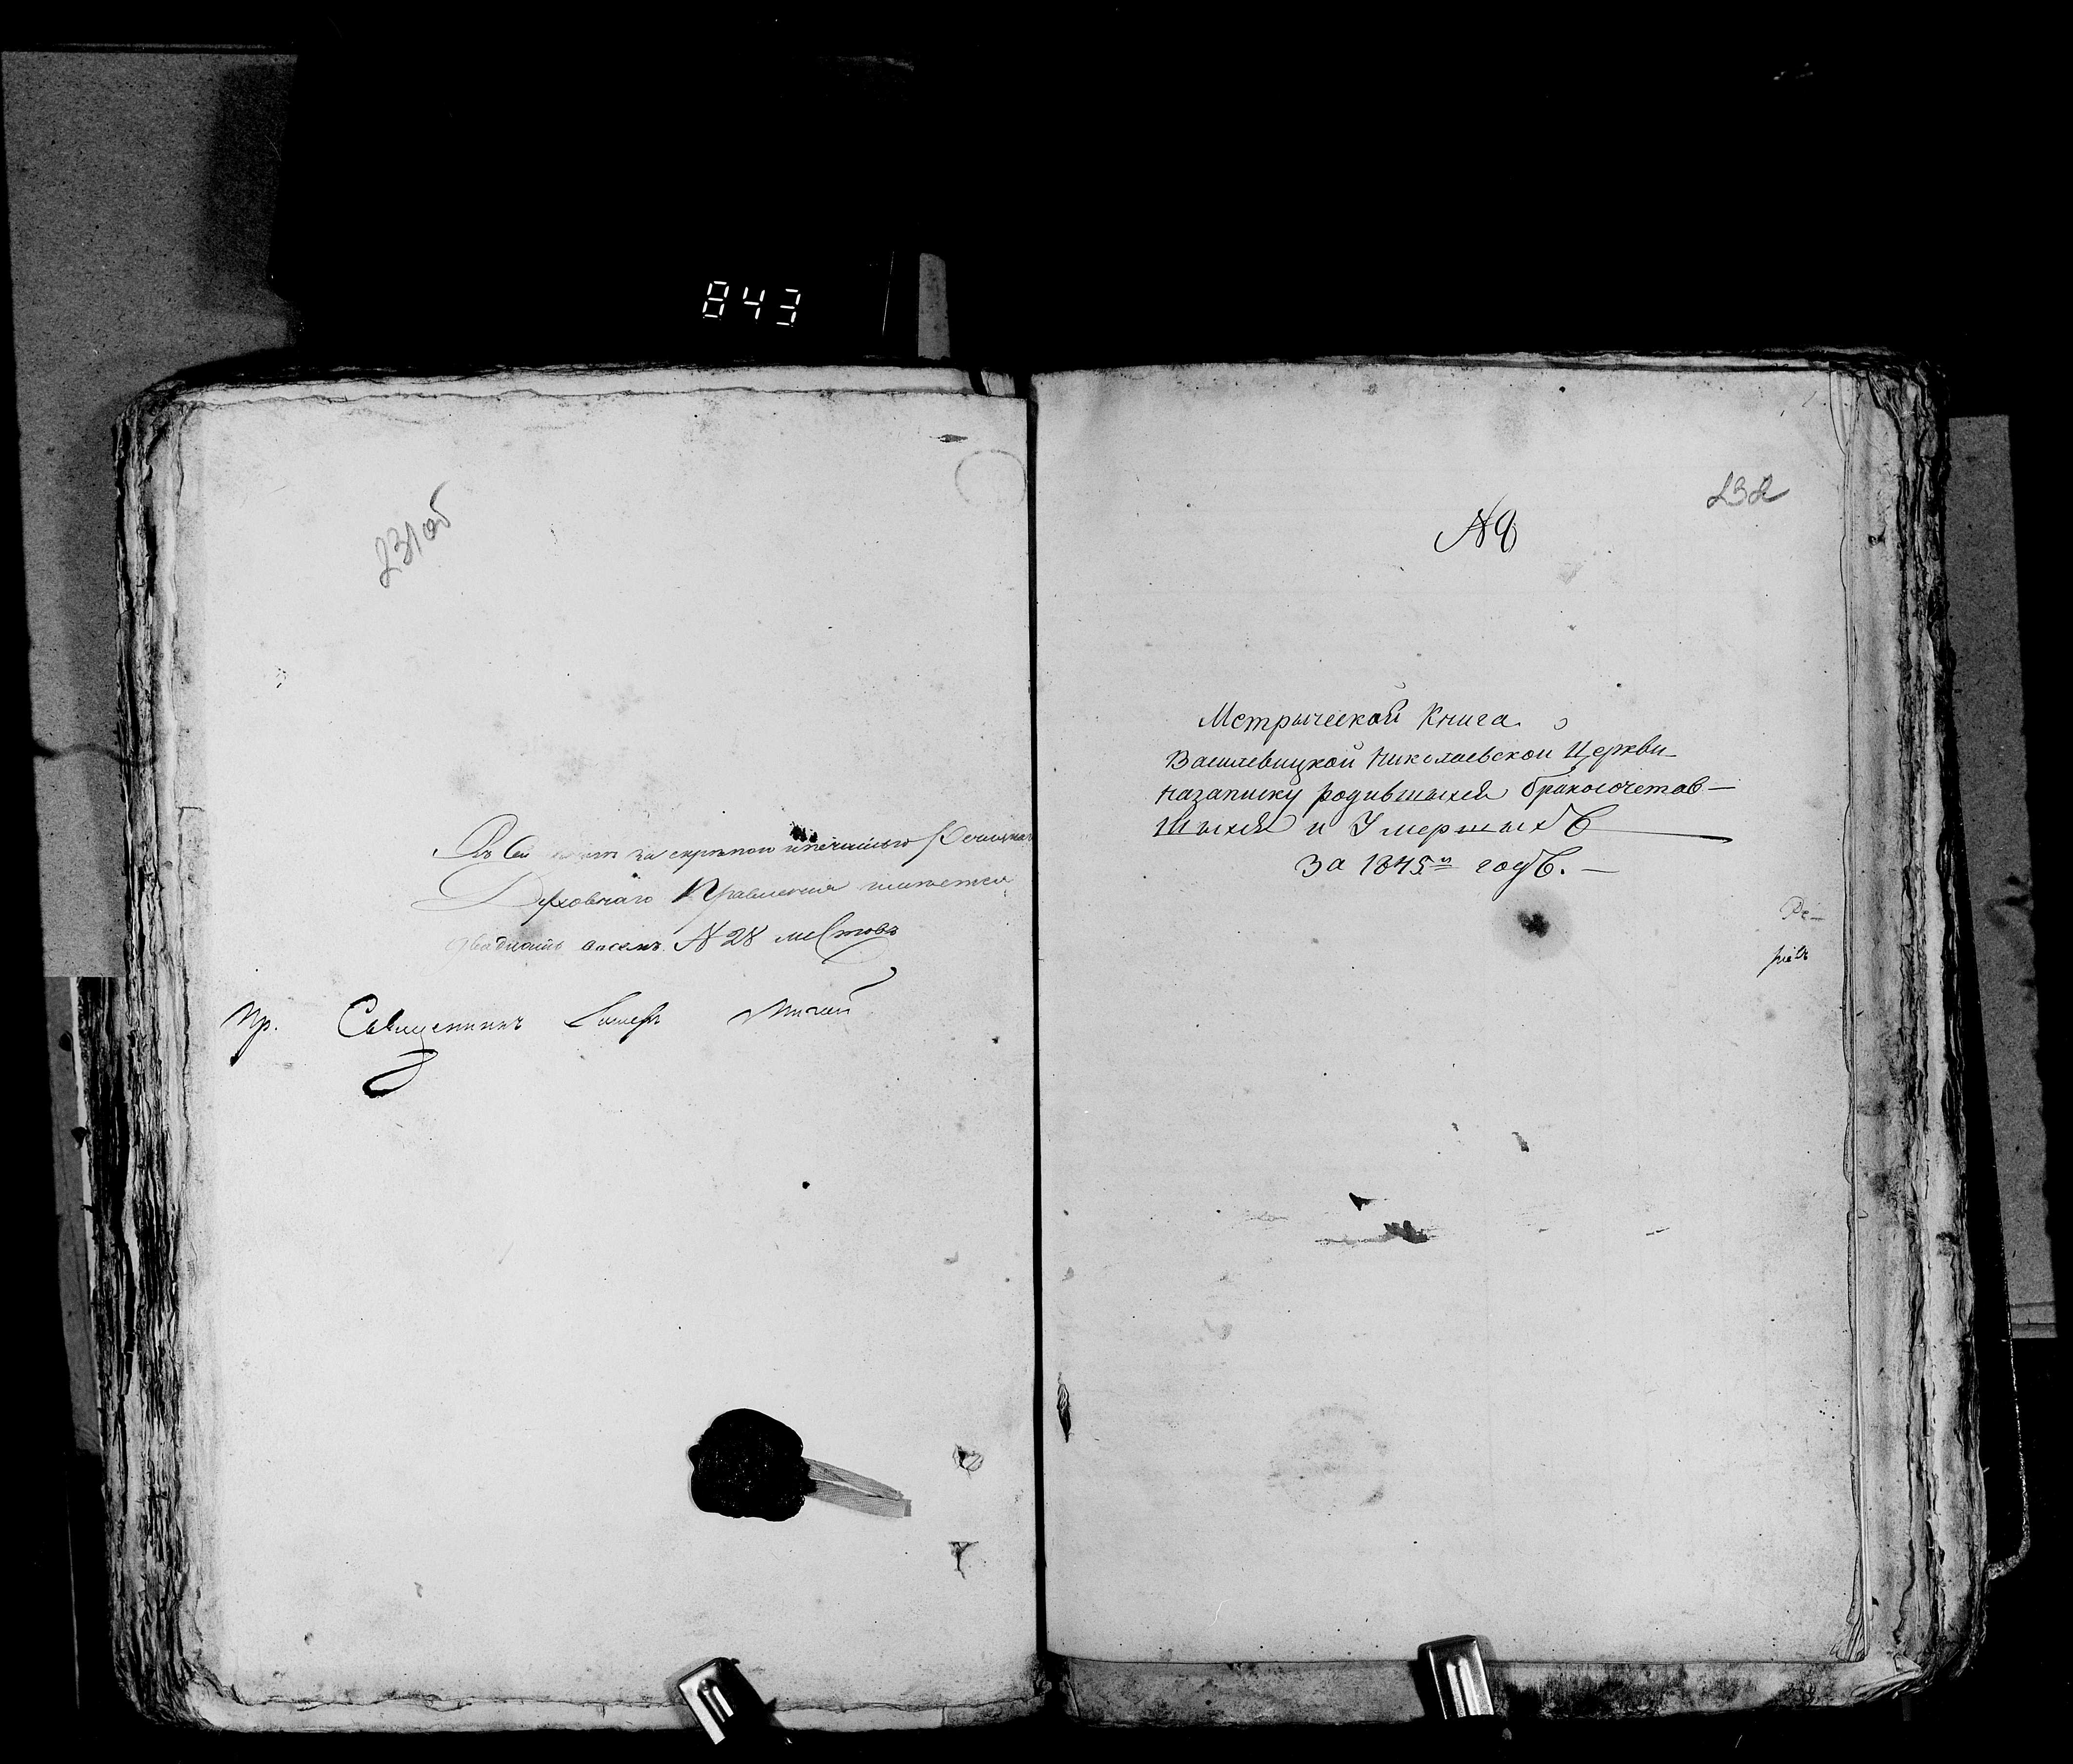 843
231 об
Въ сей за скрепою и печатью Речицкаго
Духовнаго Правления
двадцать восемь № 28 листовъ
Пр. Священникъ
232
№
Метрическая Книга
Василевицкой Николаевской Церкви
назаписку родившихся бракосочетав—
шыхся и Умершыхъ
За 1845й годъ. —